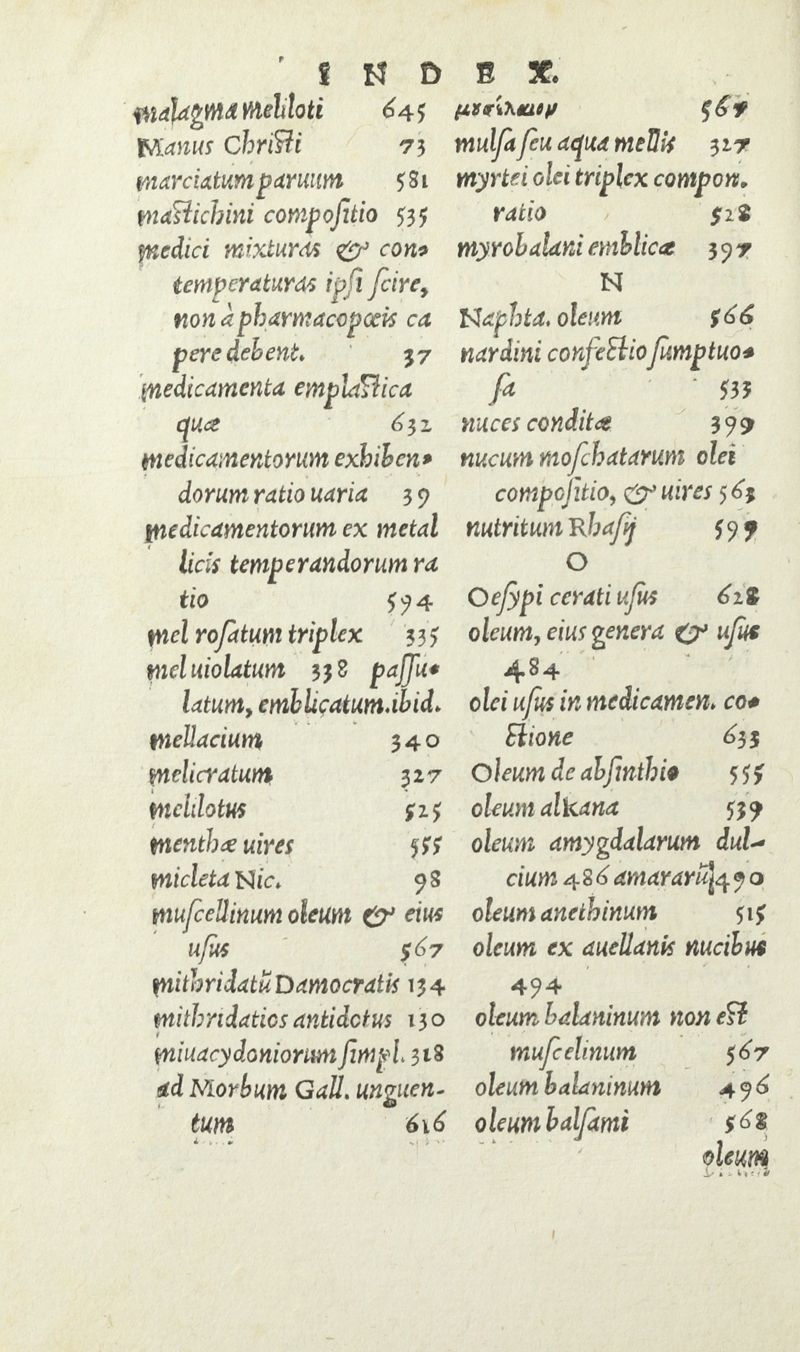 INDEX.
malagma meliloti 645
Manus Christi 73
marciatum paruum 581
mastichini compositio 535
medici mixturas & con-
temperaturas ipsi scire,
non à pharmacopœis ca
pere debent. 37
medicamenta emplastica
quæ 632
medicamentorum exhiben-
dorum ratio uaria 39
medicamentorum ex metal
licis temperandorum ra
tio 594
mel rosatum triplex 335
mel uiolatum 338 passu-
latum, emblicatum.ibid.
mellacium 340
melicratum 327
melilotus 525
menthæ uires 555
micleta Nic. 98
muscellinum oleum & eius
usus 567
mithridatũ Damocratis 134
mithridatios antidotus 130
miuacydoniorum simpl. 318
ad Morbum Gall. unguen-
tum 616
mulsa seu aqua mellis 327
myrtei olei triplex compon.
ratio 528
myrobalani emblicæ 397
N
Naphta. oleum 566
nardini confectio sumptuo-
sa 533
nuces conditæ 399
nucum moschatarum olei
compositio, & uires 563
nutritum Rhasij 597
O
Oesypi cerati usus 628
oleum, eius genera & usus
484
olei usus in medicamen. co-
ctione 633
Oleum de absinthio 555
oleum alkana 539
oleum amygdalarum dul-
cium 486 amararũ 490
oleum anethinum 515
oleum ex auellanis nucibus
494
oleum balaninum non est
muscelinum 567
oleum balaninum 496
oleum balsami 568
oleum